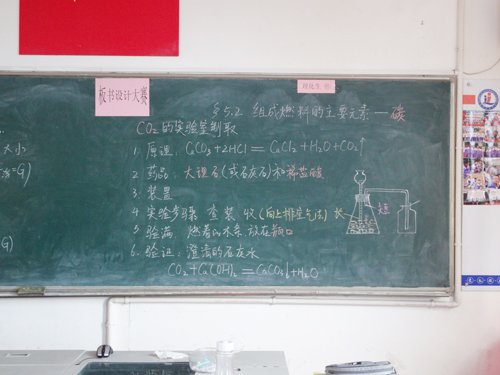 板书设计大赛
§5.2 组成燃料的主要元素—碳
CO₂的实验室制取
1. 原理: CaCO₃+2HCl=CaCl₂+H₂O+CO₂↑
2. 药品: 大理石(或石灰石)和稀盐酸
3. 装置
4. 实验步骤 查 装 收(向上排空气法)
长
短
5. 验满 燃着的木条 放在瓶口
6. 验证: 澄清的石灰水
CO₂+Ca(OH)₂=CaCO₃↓+H₂O
大小
=G)
G)